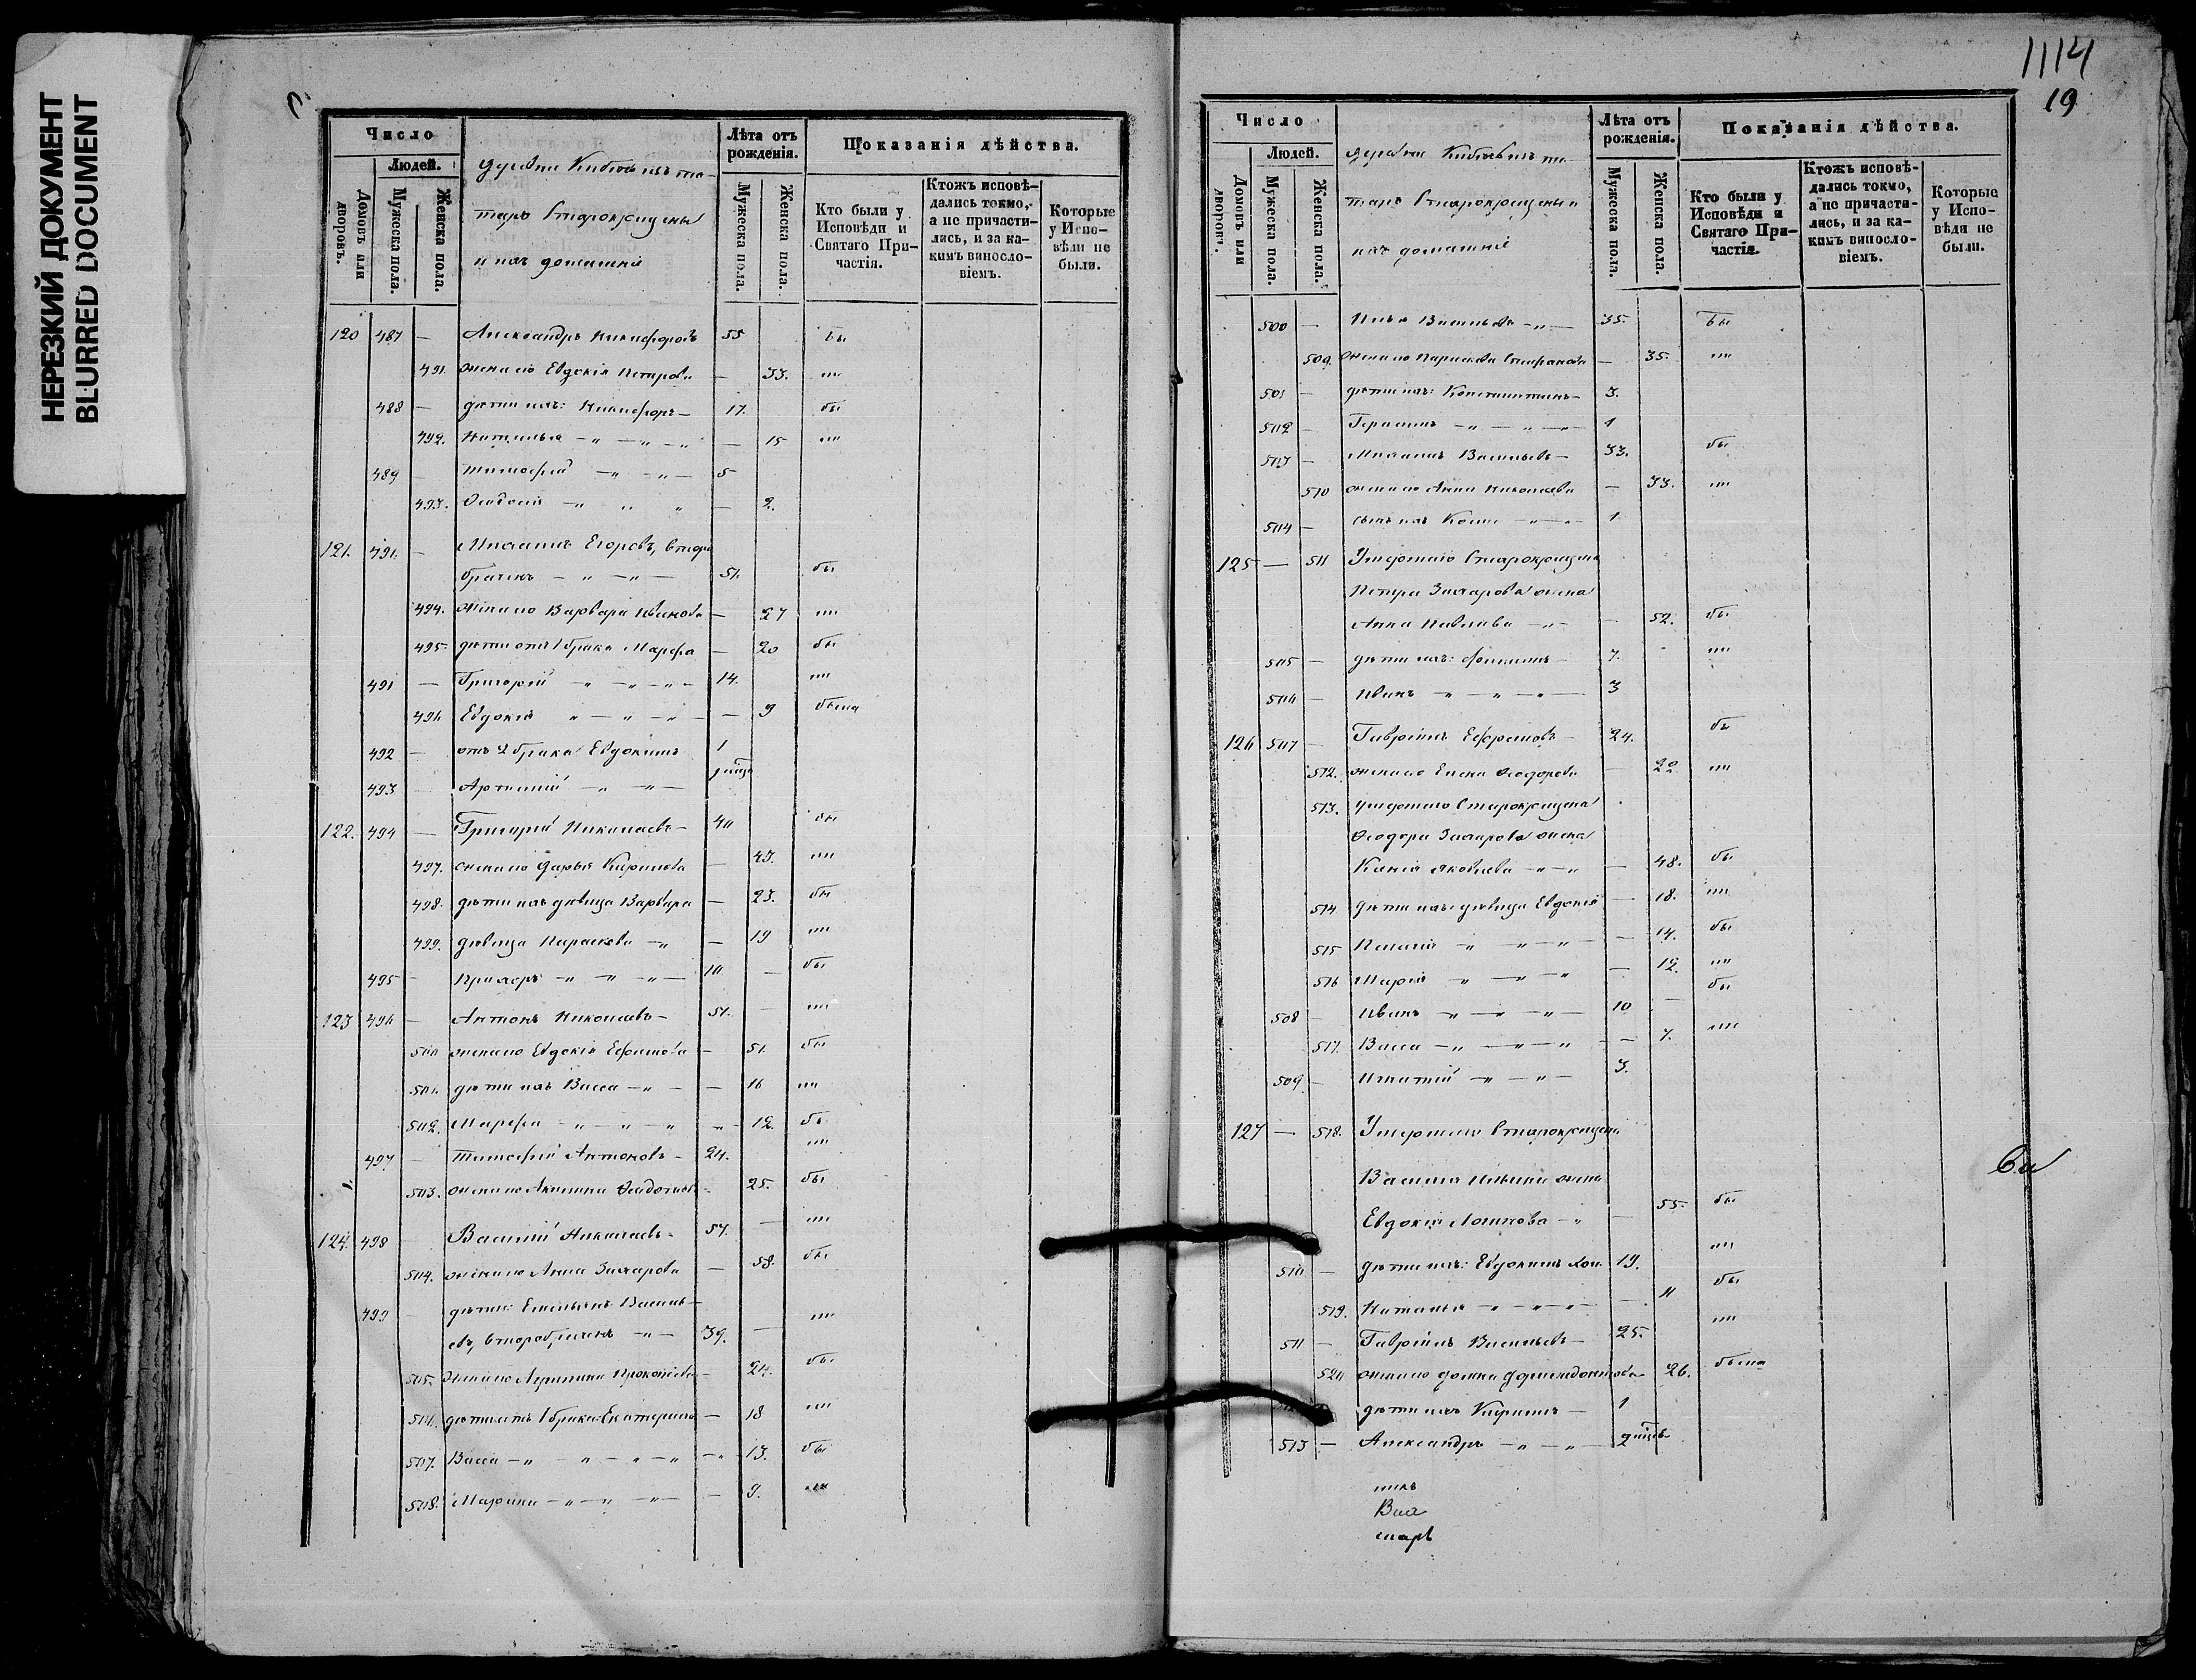 НЕРЕЗКИЙ ДОКУМЕНТ
BLURRED DOCUMENT
Число
Людей.
Домовъ или дворовъ.
Мужеска пола.
Женска пола.
таръ Старокрещены
и ихъ домашніе
Лѣта отъ рожденія.
Мужеска пола.
Женска пола.
Показанія дѣйства.
Кто были у Исповѣди и Святаго Причастія.
Ктожъ исповѣдались токмо, а не причастились, и за какимъ винословіемъ.
Которые у Исповѣди не были.
120 487 — Александръ Никифоровъ 55 бы
491. жена его Евдокія Петрова — 33. ""
488 — дѣти ихъ: Никифоръ — 17. бы
492. Наталья — 15 ""
489 Тимофей 5
493. Ѳеодосія — 2.
121. 491. — Михаилъ Егоровъ, второ
браченъ 51. бы
494. жена его Варвара Иванова — 27 ""
495. дѣти отъ 1 брака Марфа — 20 бы
491 — Григорій 14. ""
496 Евдокія — 9 была
492 — отъ 2 брака Евдокимъ 1
493 Артемій
122. 494 — Григорій Николаевъ 40 бы
497. жена его Дарья Кирилова — 43. ""
498. дѣти ихъ дѣвица Варвара — 23. бы
499. дѣвица Параскева — 19 ""
495 10 — бы
123 496 — Антонъ Николаевъ — 51. — ""
500 жена его Евдокія Ефимова — 51. бы
501. дѣти ихъ Васса — 16 ""
502. Марфа — 12. бы
497 — Тимофей Антоновъ — 20. ""
503. жена его Акилина — 25. бы
124. 498 Василій Николаевъ 57. — ""
504. жена его Анна Захарова — 58. бы
499 дѣти: Емельянъ Василь-
евъ, второбраченъ 39. — ""
505. жена его Агрипина Прокопьева — 24. бы
506. дѣти отъ 1 брака: Екатерина — 18 ""
507. Васса — 13. бы
508. Марина — 9. ""
1114
19
Число
Людей.
Домовъ или дворовъ.
Мужеска пола.
Женска пола.
таръ Старокрещены и
ихъ домашніе
Лѣта отъ рожденія.
Мужеска пола.
Женска пола.
Показанія дѣйства.
Кто были у Исповѣди и Святаго Причастія.
Ктожъ исповѣдались токмо, а не причастились, и за какимъ винословіемъ.
Которые у Исповѣди не были.
500 — Илья Васильевъ 35. бы
509. жена его Параскева Стефанова — 35. ""
501 — дѣти ихъ: Константинъ — 3.
502 — Герасимъ 1
503 — Михаилъ Васильевъ — 33. бы
510 жена его Анна Николаева — 33. ""
504 — сынъ ихъ 1
125 — 511 Умершаго Старокрещена
Петра Захарова жена
Анна Павлова — 52. бы
505 — дѣти ихъ: 7. ""
506 — Иванъ 3
126 507 — Гавріилъ Ефремовъ — 24. бы
512. жена его Елена Ѳеодорова — 22 ""
513. Умершаго Старокрещена
Ѳеодора Захарова жена
Ксенія Яковлева — 48. бы
514 дѣти ихъ: дѣвица Евдокія — 18. ""
515 Пелагія — 14. бы
516 Марія — 12. ""
508 — Иванъ 10 — бы
517. Васса — 7. ""
509 — Игнатій 3.
127 — 518. Умершаго Старокрещена
Василія Ильина жена
Евдокія Логинова — 55. бы
510 — дѣти ихъ: Евдокимъ хол. 19. ""
519. Наталья — 11 бы
511 — Гавріилъ Васильевъ — 25. ""
520 жена его Домна 26. была
дѣти ихъ Кирилъ — 1
513 — Александръ